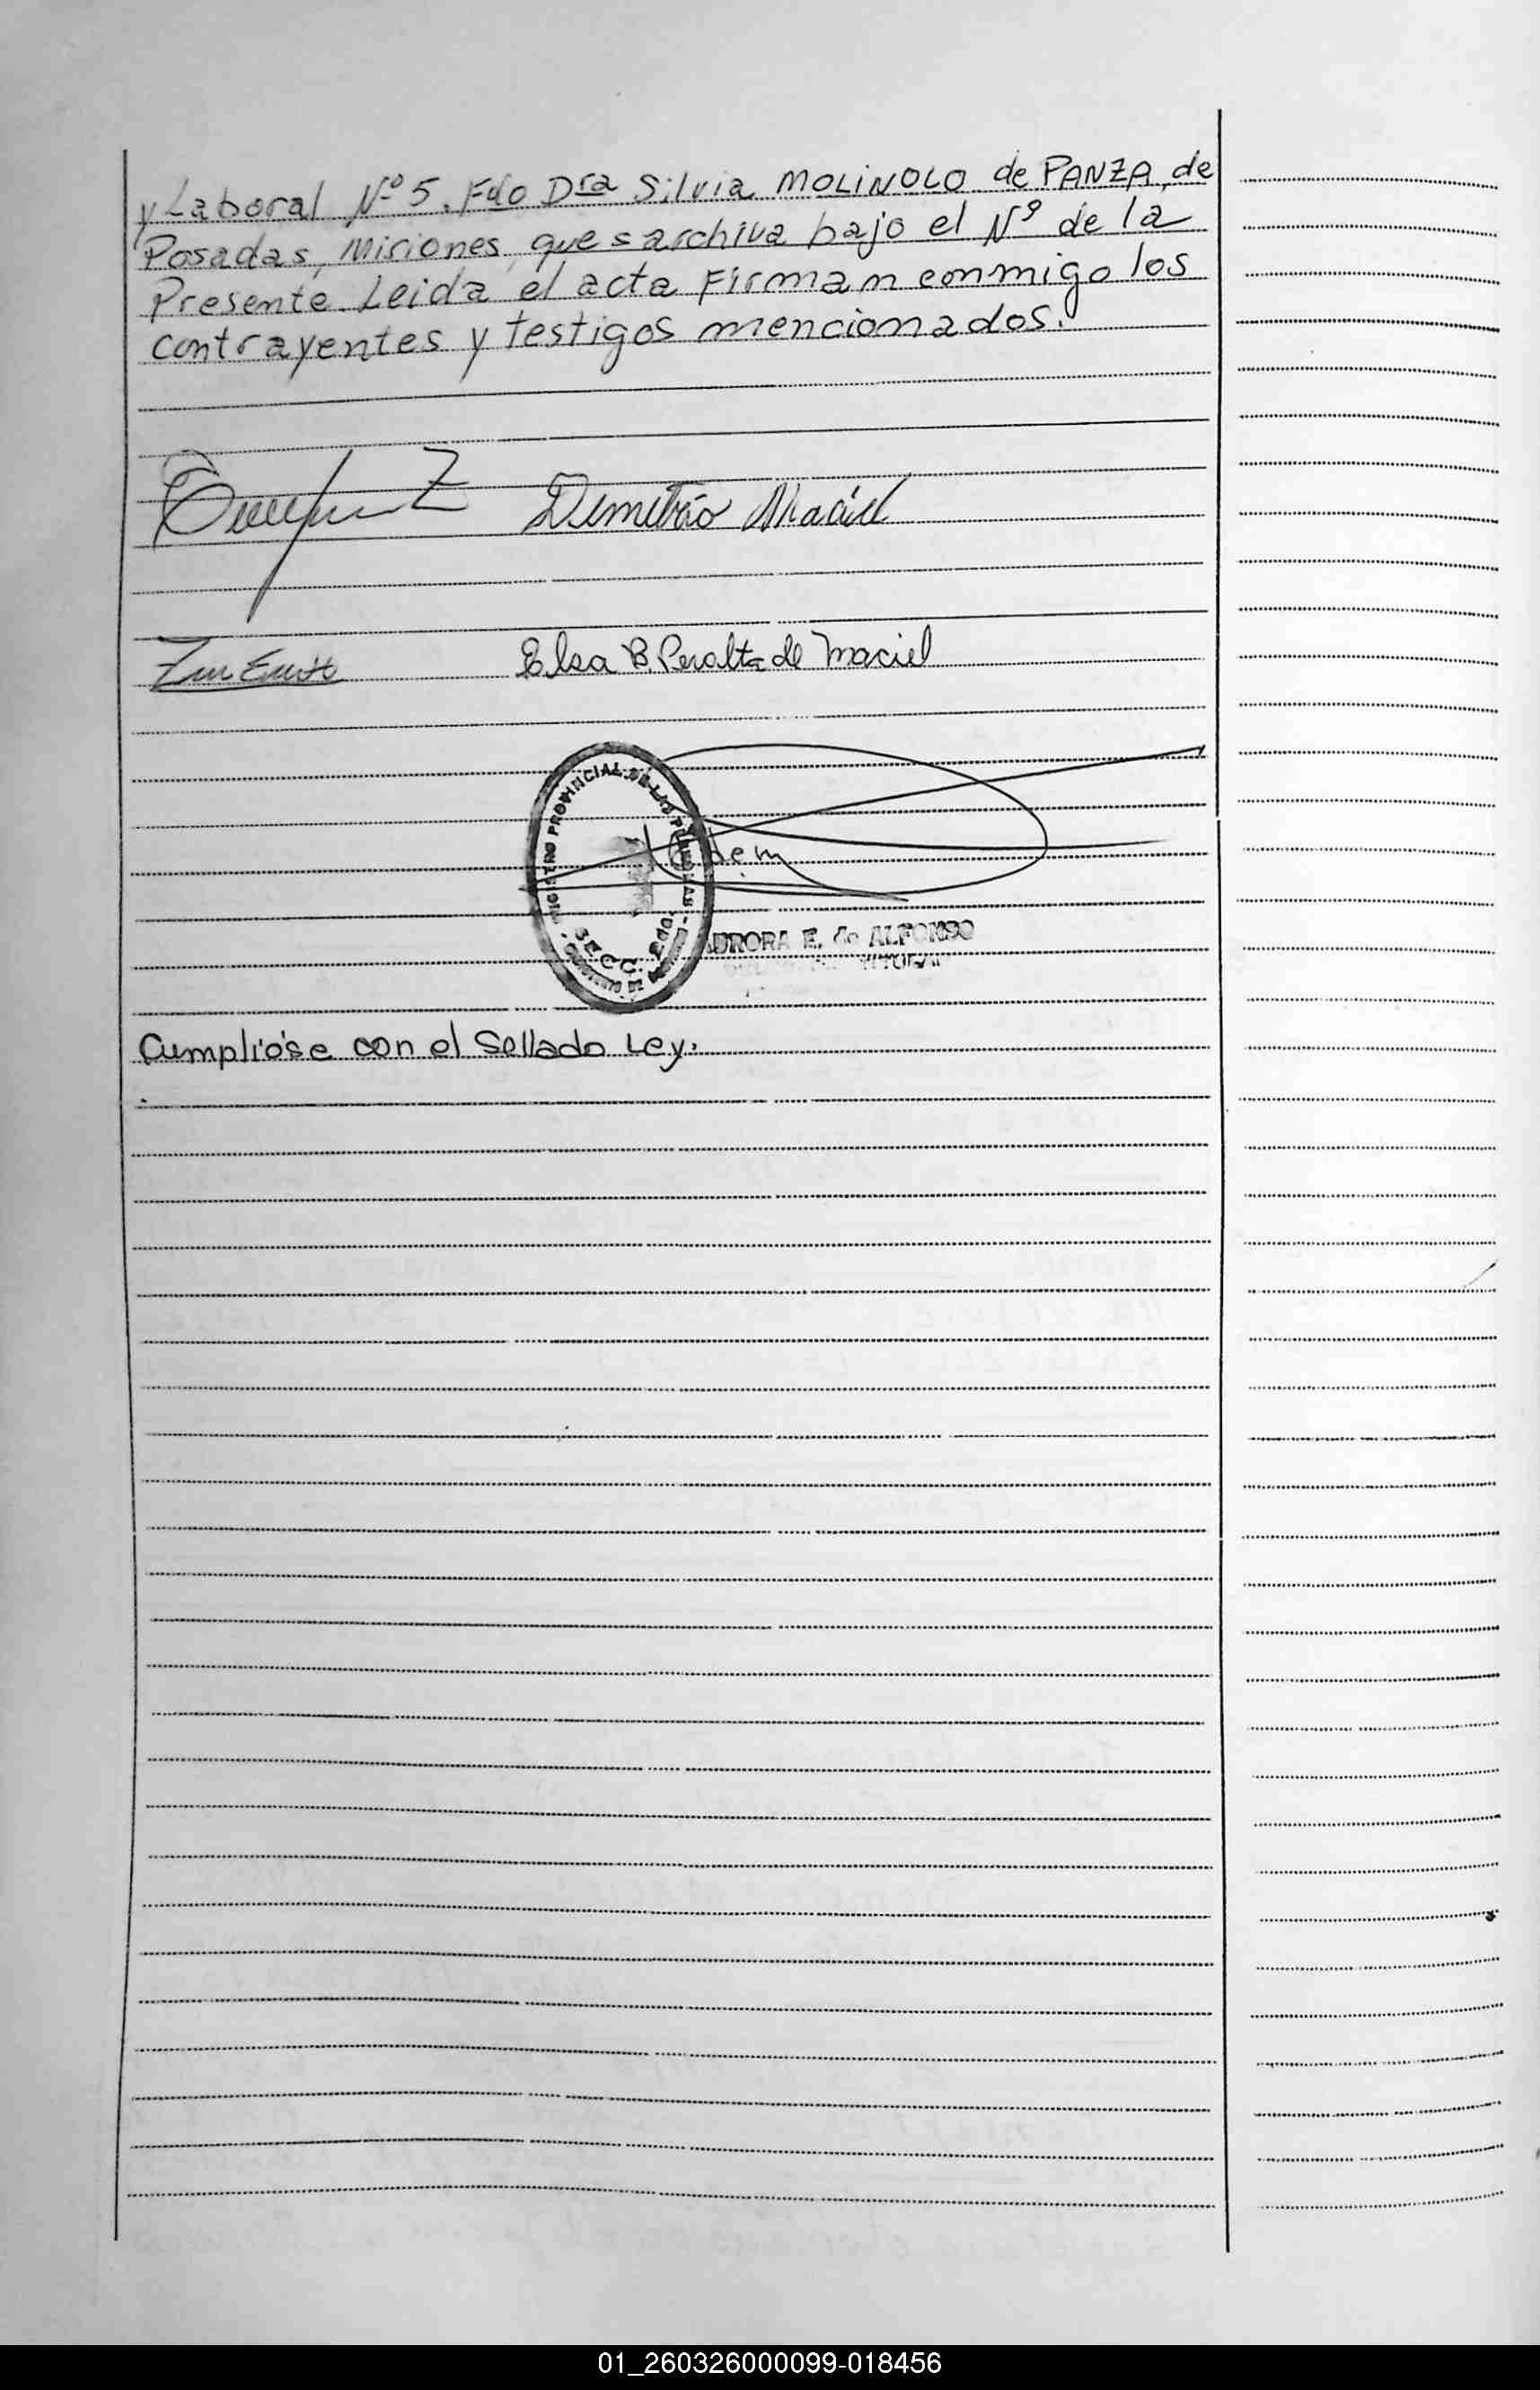 y Laboral Nº 5. Fdo Dra Silvia MOLINOLO de PANZA, de
Posadas, Misiones, que s archiva bajo el Nº de la
Presente. Leida el acta Firman conmigo los
contrayentes y testigos mencionados.
Demetrio Maciel
Elsa B. Peralta de Maciel
REGISTRO PROVINCIAL DE LAS PERSONAS
SECC. 2da
AURORA E. de ALFONSO
TITULAR
Cumplióse con el Sellado Ley.
01_260326000099-018456